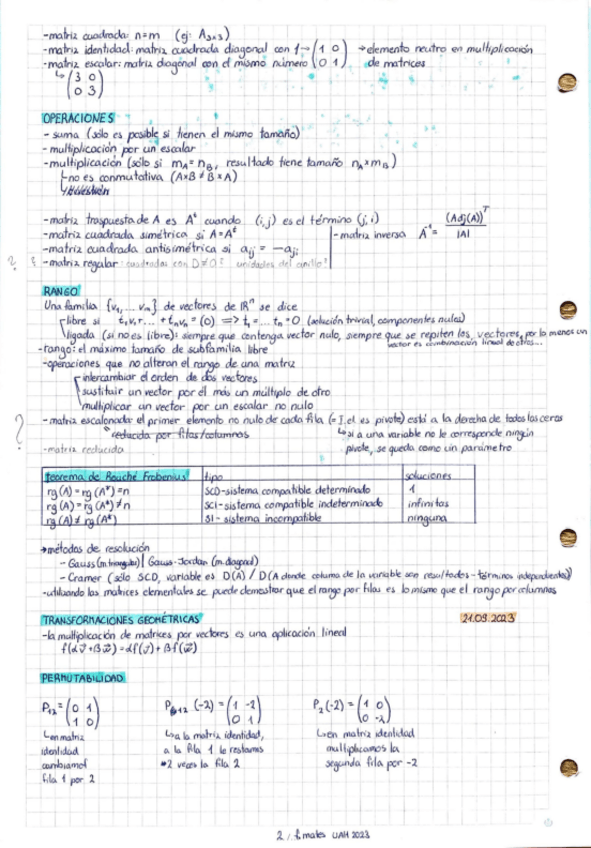 -matriz cuadrada: n=m (ej: A3x3)
-matriz identidad: matriz cuadrada diagonal con 1→(1 0 / 0 1) →elemento neutro en multiplicación de matrices
-matriz escalar: matriz diagonal con el mismo número
↳(3 0 / 0 3)
OPERACIONES
- suma (sólo es posible si tienen el mismo tamaño)
- multiplicación por un escalar
- multiplicación (sólo si mA=nB, resultado tiene tamaño nA×mB)
↳no es conmutativa (A×B≠B×A)
-matriz traspuesta de A es Aᵗ cuando (i,j) es el término (j,i)
-matriz cuadrada simétrica si A=Aᵗ
-matriz inversa A⁻¹= (Adj(A))ᵀ / |A|
-matriz cuadrada antisimétrica si aij = -aji
? ? -matriz regular: cuadradas con D≠0? unidades del anillo?
RANGO
Una familia {v1,... vm} de vectores de ℝⁿ se dice
libre si t1v1... + tnvn = (0) => t1 = ... tn = 0 (solución trivial, componentes nulas)
ligada (si no es libre): siempre que contenga vector nulo, siempre que se repiten los vectores, por lo menos un
vector es combinación lineal de otros...
-rango: el máximo tamaño de subfamilia libre
-operaciones que no alteran el rango de una matriz
intercambiar el orden de dos vectores
sustituir un vector por él más un múltiplo de otro
multiplicar un vector por un escalar no nulo
? - matriz escalonada: el primer elemento no nulo de cada fila (= 1, el es pivote) está a la derecha de todos los ceros
reducida por filas/columnas
↳si a una variable no le corresponde ningún
pivote, se queda como un parámetro
-matriz reducida
teorema de Rouché Frobenius tipo soluciones
rg(A) = rg(A*) = n SCD-sistema compatible determinado 1
rg(A) = rg(A*) ≠ n SCI-sistema compatible indeterminado infinitas
rg(A) ≠ rg(A*) SI - sistema incompatible ninguna
→métodos de resolución
- Gauss (m. triangular) | Gauss-Jordan (m. diagonal)
- Cramer (sólo SCD, variable es D(A) / D(A donde columna de la variable son resultados-términos independientes))
-utilizando las matrices elementales se puede demostrar que el rango por filas es lo mismo que el rango por columnas
TRANSFORMACIONES GEOMÉTRICAS 21.09.2023
-la multiplicación de matrices por vectores es una aplicación lineal
f(αv⃗+βw⃗) = αf(v⃗) + βf(w⃗)
PERMUTABILIDAD
P12 = (0 1 / 1 0) P12 (-2) = (1 -2 / 0 1) P2(-2) = (1 0 / 0 -2)
↳en matriz
identidad
cambiamos
fila 1 por 2
↳a la matriz identidad,
a la fila 1 le restamos
2 veces la fila 2
↳en matriz identidad
multiplicamos la
segunda fila por -2
UAH 2023